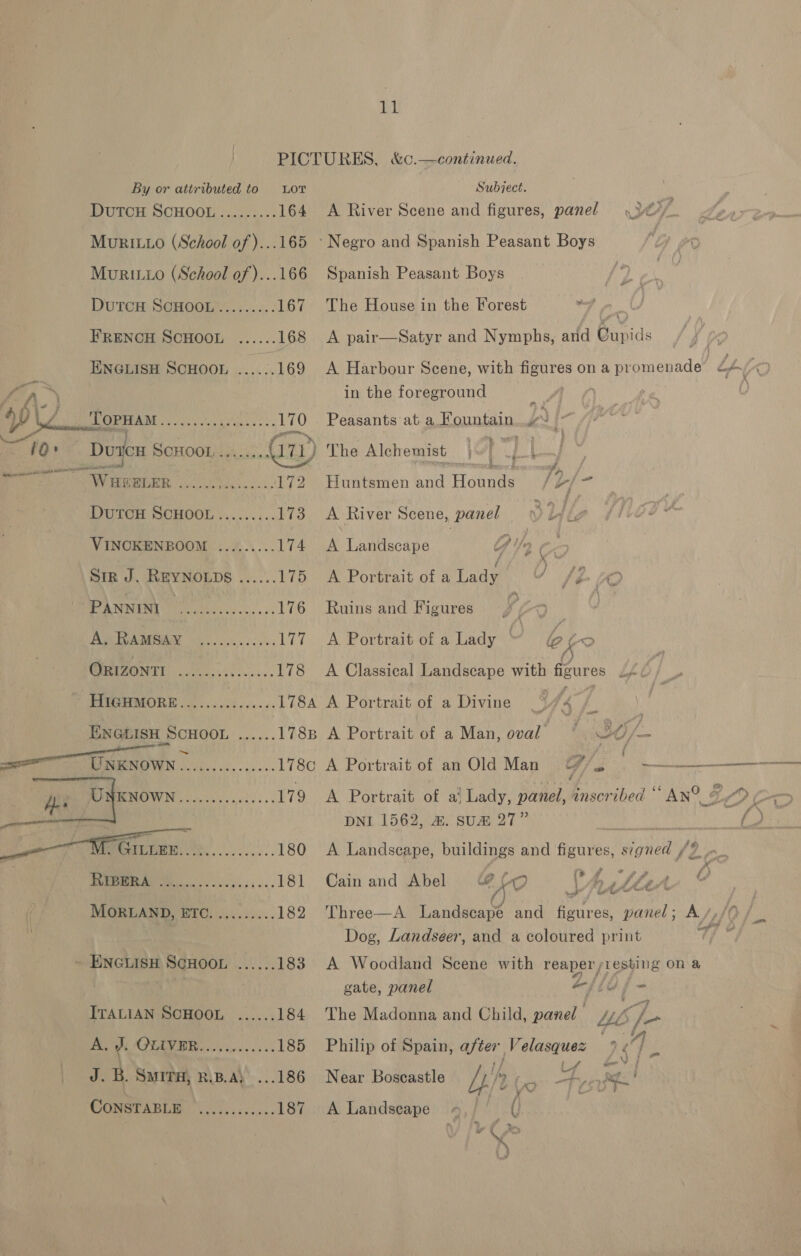 11
PICTURES, &c.—continued.
By or attributed to LOT Subject.
DUTCH SCHOOL ......... 164 A River Scene and figures, panel
MURILLO (School of)...165 Negro and Spanish Peasant Boys
MURILLO (School of)...166 Spanish Peasant Boys
DUTCH SCHOOL ......... 167 The House in the Forest
FRENCH SCHOOL ...... 168 A pair—Satyr and Nymphs, and Cupids
ENGLISH SCHOOL ...... 169 A Harbour Scene, with figures on a promenade
in the foreground
TOPHAM ............... 170 Peasants at a Fountain
10 DUTCH SCHOOL ......... 171 The Alchemist
WHEELER ............... 172 Huntsmen and Hounds
DUTCH SCHOOL ......... 173 A River Scene, panel
VINCKENBOOM ......... 174 A Landscape
SIR J. REYNOLDS ...... 175 A Portrait of a Lady
PANNINI ............... 176 Ruins and Figures
A. RAMSAY ............ 177 A Portrait of a Lady
ORIZONTI ............... 178 A Classical Landscape with figures
HIGHMORE ............... 178A A Portrait of a Divine
ENGLISH SCHOOL ...... 178B A Portrait of a Man, oval
UNKNOWN ............... 178C A Portrait of an Old Man
UNKNOWN ............... 179 A Portrait of a Lady, panel, inscribed “ANO
DNI 1562, Æ. SUÆ 27”
M. GILLER ............... 180 A Landscape, buildings and figures, signed
RIBERA ............... 181 Cain and Abel
MORLAND, ETC. ......... 182 Three—A Landscape and figures, panel; A
Dog, Landseer, and a coloured print
ENGLISH SCHOOL ...... 183 A Woodland Scene with reaper resting on a
gate, panel
ITALIAN SCHOOL ...... 184 The Madonna and Child, panel
A. J. OLIVER ............ 185 Philip of Spain, after Velasquez
J. B. SMITH, R.B.A. ...186 Near Boscastle
CONSTABLE ............ 187 A Landscape